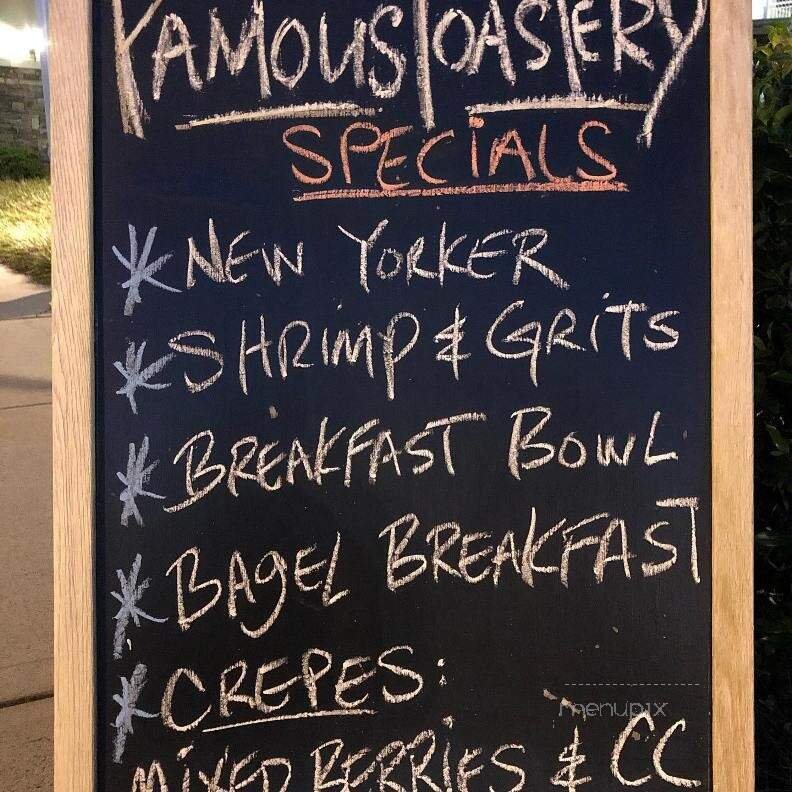 FAMOUS TOASTERY
SPECIALS
* NEW YORKER
* SHRIMP & GRiTS
* BREAKFAST BOWL
* BAgEL BREAKFAST
* CREPES:
MiXED BERRiES & CC
menupix